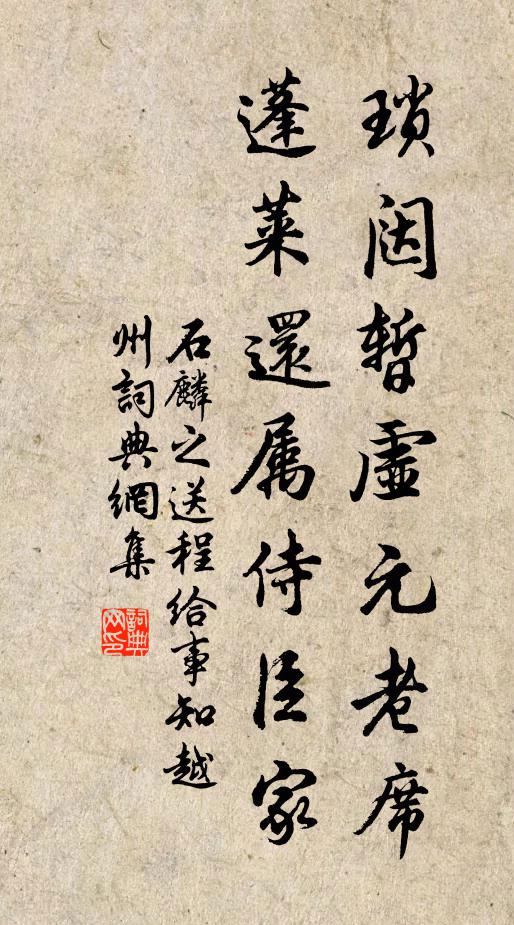 瑣闼暫虛元老席
蓬萊還属侍臣家
石麟之送程给事知越
州詞典網集
詞典网印